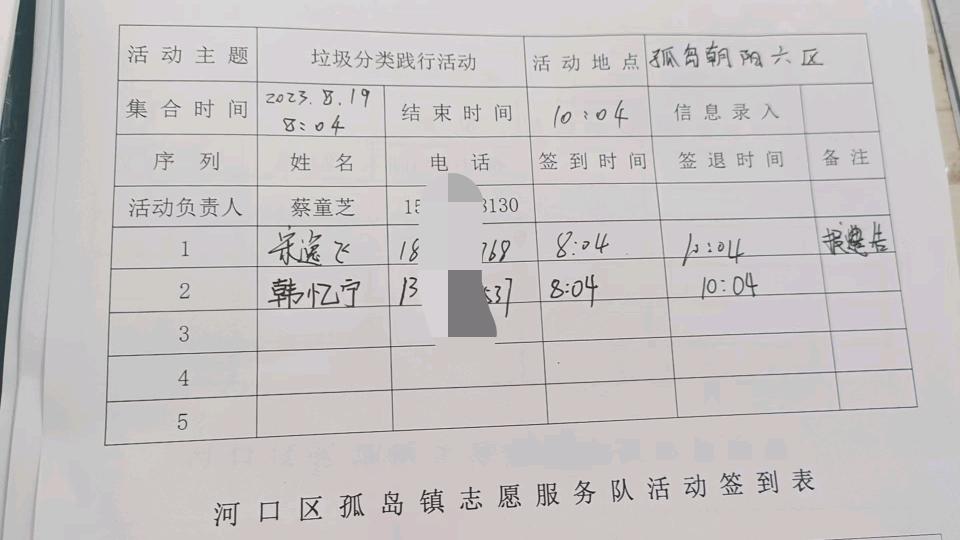 活动主题 垃圾分类践行活动 活动地点 孤岛朝阳六区
集合时间 2023.8.19 8:04 结束时间 10:04 信息录入
序列 姓名 电话 签到时间 签退时间 备注
活动负责人 蔡童芝 15 3130
1 宋逸飞 18 768 8:04 10:04
2 韩忆宁 13 537 8:04 10:04
3
4
5
河口区孤岛镇志愿服务队活动签到表